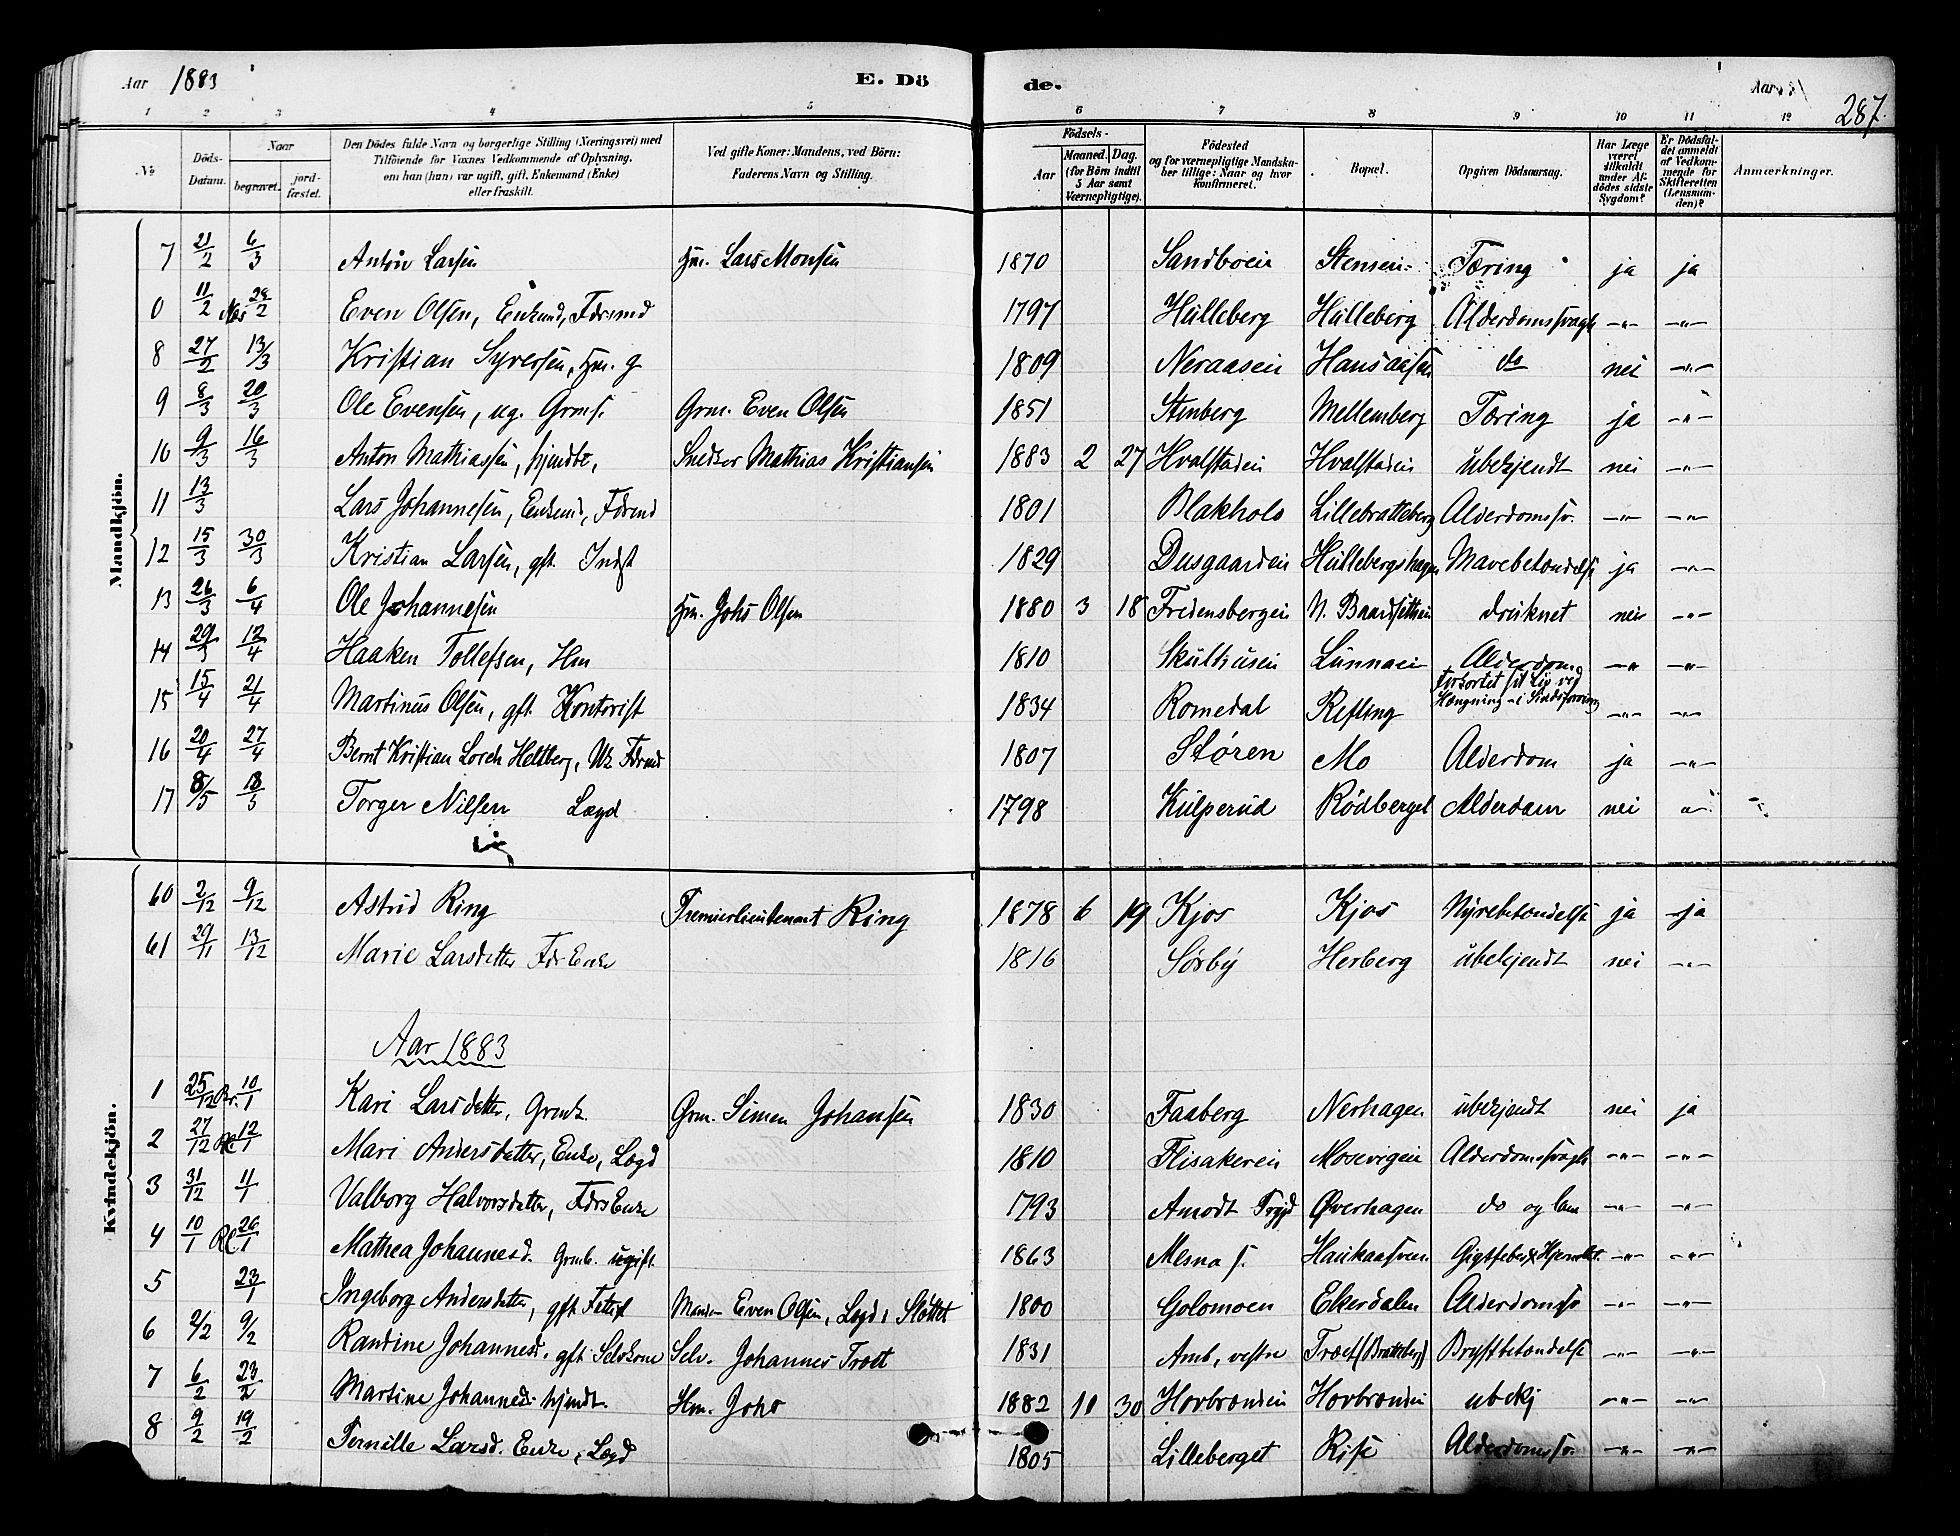 Aar 1883 E. Döde. Aar 287.
1 2 3 4 5 6 7 8 9 10 11 12
№ Döds-Datum. Naar begravet. jord-fæstet. Den Dödes fulde Navn og borgerlige Stilling (Næringsvei) med Tilföiende for Voxnes Vedkommende af Oplysning, om han (hun) var ugift, gift, Enkemand (Enke) eller fraskilt. Ved gifte Koner: Mandens, ved Börn: Faderens Navn og Stilling. Födsels- Aar Maaned. Dag. (for Börn indtil 5 Aar samt Værnepligtige). Födested og for værnepligtige Mandskaber tillige: Naar og hvor konfirmeret. Bopæl. Opgiven Dödsaarsag. Har Læge været tilkaldt under Afdödes sidste Sygdom? Er Dödsfaldet anmeldt af Vedkommende for Skifteretten (Lensmanden)? Anmærkninger.
Mandkjön.
7 21/2 6/3 Anton Larsen Hm. Lars Monsen 1870 Sandboen Stensen Tæring ja ja
0 11/2 28/2 Even Olsen, Enkemd, Fdrmd 1797 Hulleberg Hulleberg Alderdomssvagh -"- -"-
8 27/2 13/3 Kristian Syversen, Hm. g 1809 Neraasen do nei -"-
9 8/3 20/3 Ole Evensen, ug. Grms. Grm. Even Olsen 1851 Stenberg Mellemberg Tæring ja -"-
10 9/3 16/3 Anton Mathiassen, hjendbt, Snedker Mathias Kristiansen 1883 2 27 Hvalstaden Hvalstaden ubekjendt nei -"-
11 13/3 Lars Johannesen, Enkemd, Fdrmd 1801 Blakhols Lillebratteberg Alderdomssv. -"- -"-
12 15/3 30/3 Kristian Larsen, gft. Indst 1829 Dusgaarden Hullebergshagen Mavebetændelse ja -"-
13 26/3 6/4 Ole Johannesen Hm. Johs Olsen 1880 3 18 Fredensbergen N. Baardsethen druknet nei -"-
14 29/3 12/4 Haaken Tollefsen, Hm 1810 Skulhusen Lunnaen Alderdom -"- -"-
15 15/4 21/4 Martinus Olsen, gft Kontorist 1834 Romedal Refling Forkortet sit Liv ved Hængning i Sindsforvirring -"- -"-
16 20/4 27/4 Bernt Kristian Lorch Heltberg, Fdrmd 1807 Støren Mo Alderdom ja -"-
17 8/5 18/5 Torger Nilsen Lægd 1798 Kulperud Rödberget Alderdom nei -"-
Kvindekjön.
60 2/12 9/12 Astrid Ring Premierlieutenant Ring 1878 6 19 Kjos Kjos Nyrebetændelse ja ja
61 29/11 13/12 Marie Larsdatter Fdr Enke 1816 Sørby Herberg ubekjendt nei -"-
Aar 1883
1 25/12 10/1 Kari Larsdatter, Grmk. Grm. Simen Johansen 1830 Faaberg Nerhagen ubekjendt nei ja
2 27/12 12/1 Mari Andersdatter, Enke, Lægd 1810 Flisakeren Mosevigen Alderdomssvagh -"- -"-
3 31/12 11/1 Valborg Halvorsdatter, Fdrs Enke 1793 Amodt Trysl Øverhagen do og lam -"- -"-
4 10/1 26/1 Mathea Johannesd. Grmb. ugift. 1863 Mesna s. Haukaasveen Gigtfeber & Hjertebet. -"- -"-
5 23/1 Ingeborg Andersdatter, gft. Manden Even Olsen, Lægd, Slottet 1800 Golomoen Ekerdalen Alderdomssv -"- -"-
6 2/2 9/2 Randine Johannesd. gft Selvkone Selv. Johannes Troet 1831 Amb, vestre Troet (Bratberg) Brystbetændelse -"- -"-
7 6/2 23/2 Martine Johannesd. hjmdt. Hm. Johs 1882 10 30 Hovbrænden Hovbrænden ubekj -"- -"-
8 9/2 19/2 Pernille Larsd. Enke, Lægd 1805 Lilleberget Rise Alderdomssv. -"- -"-